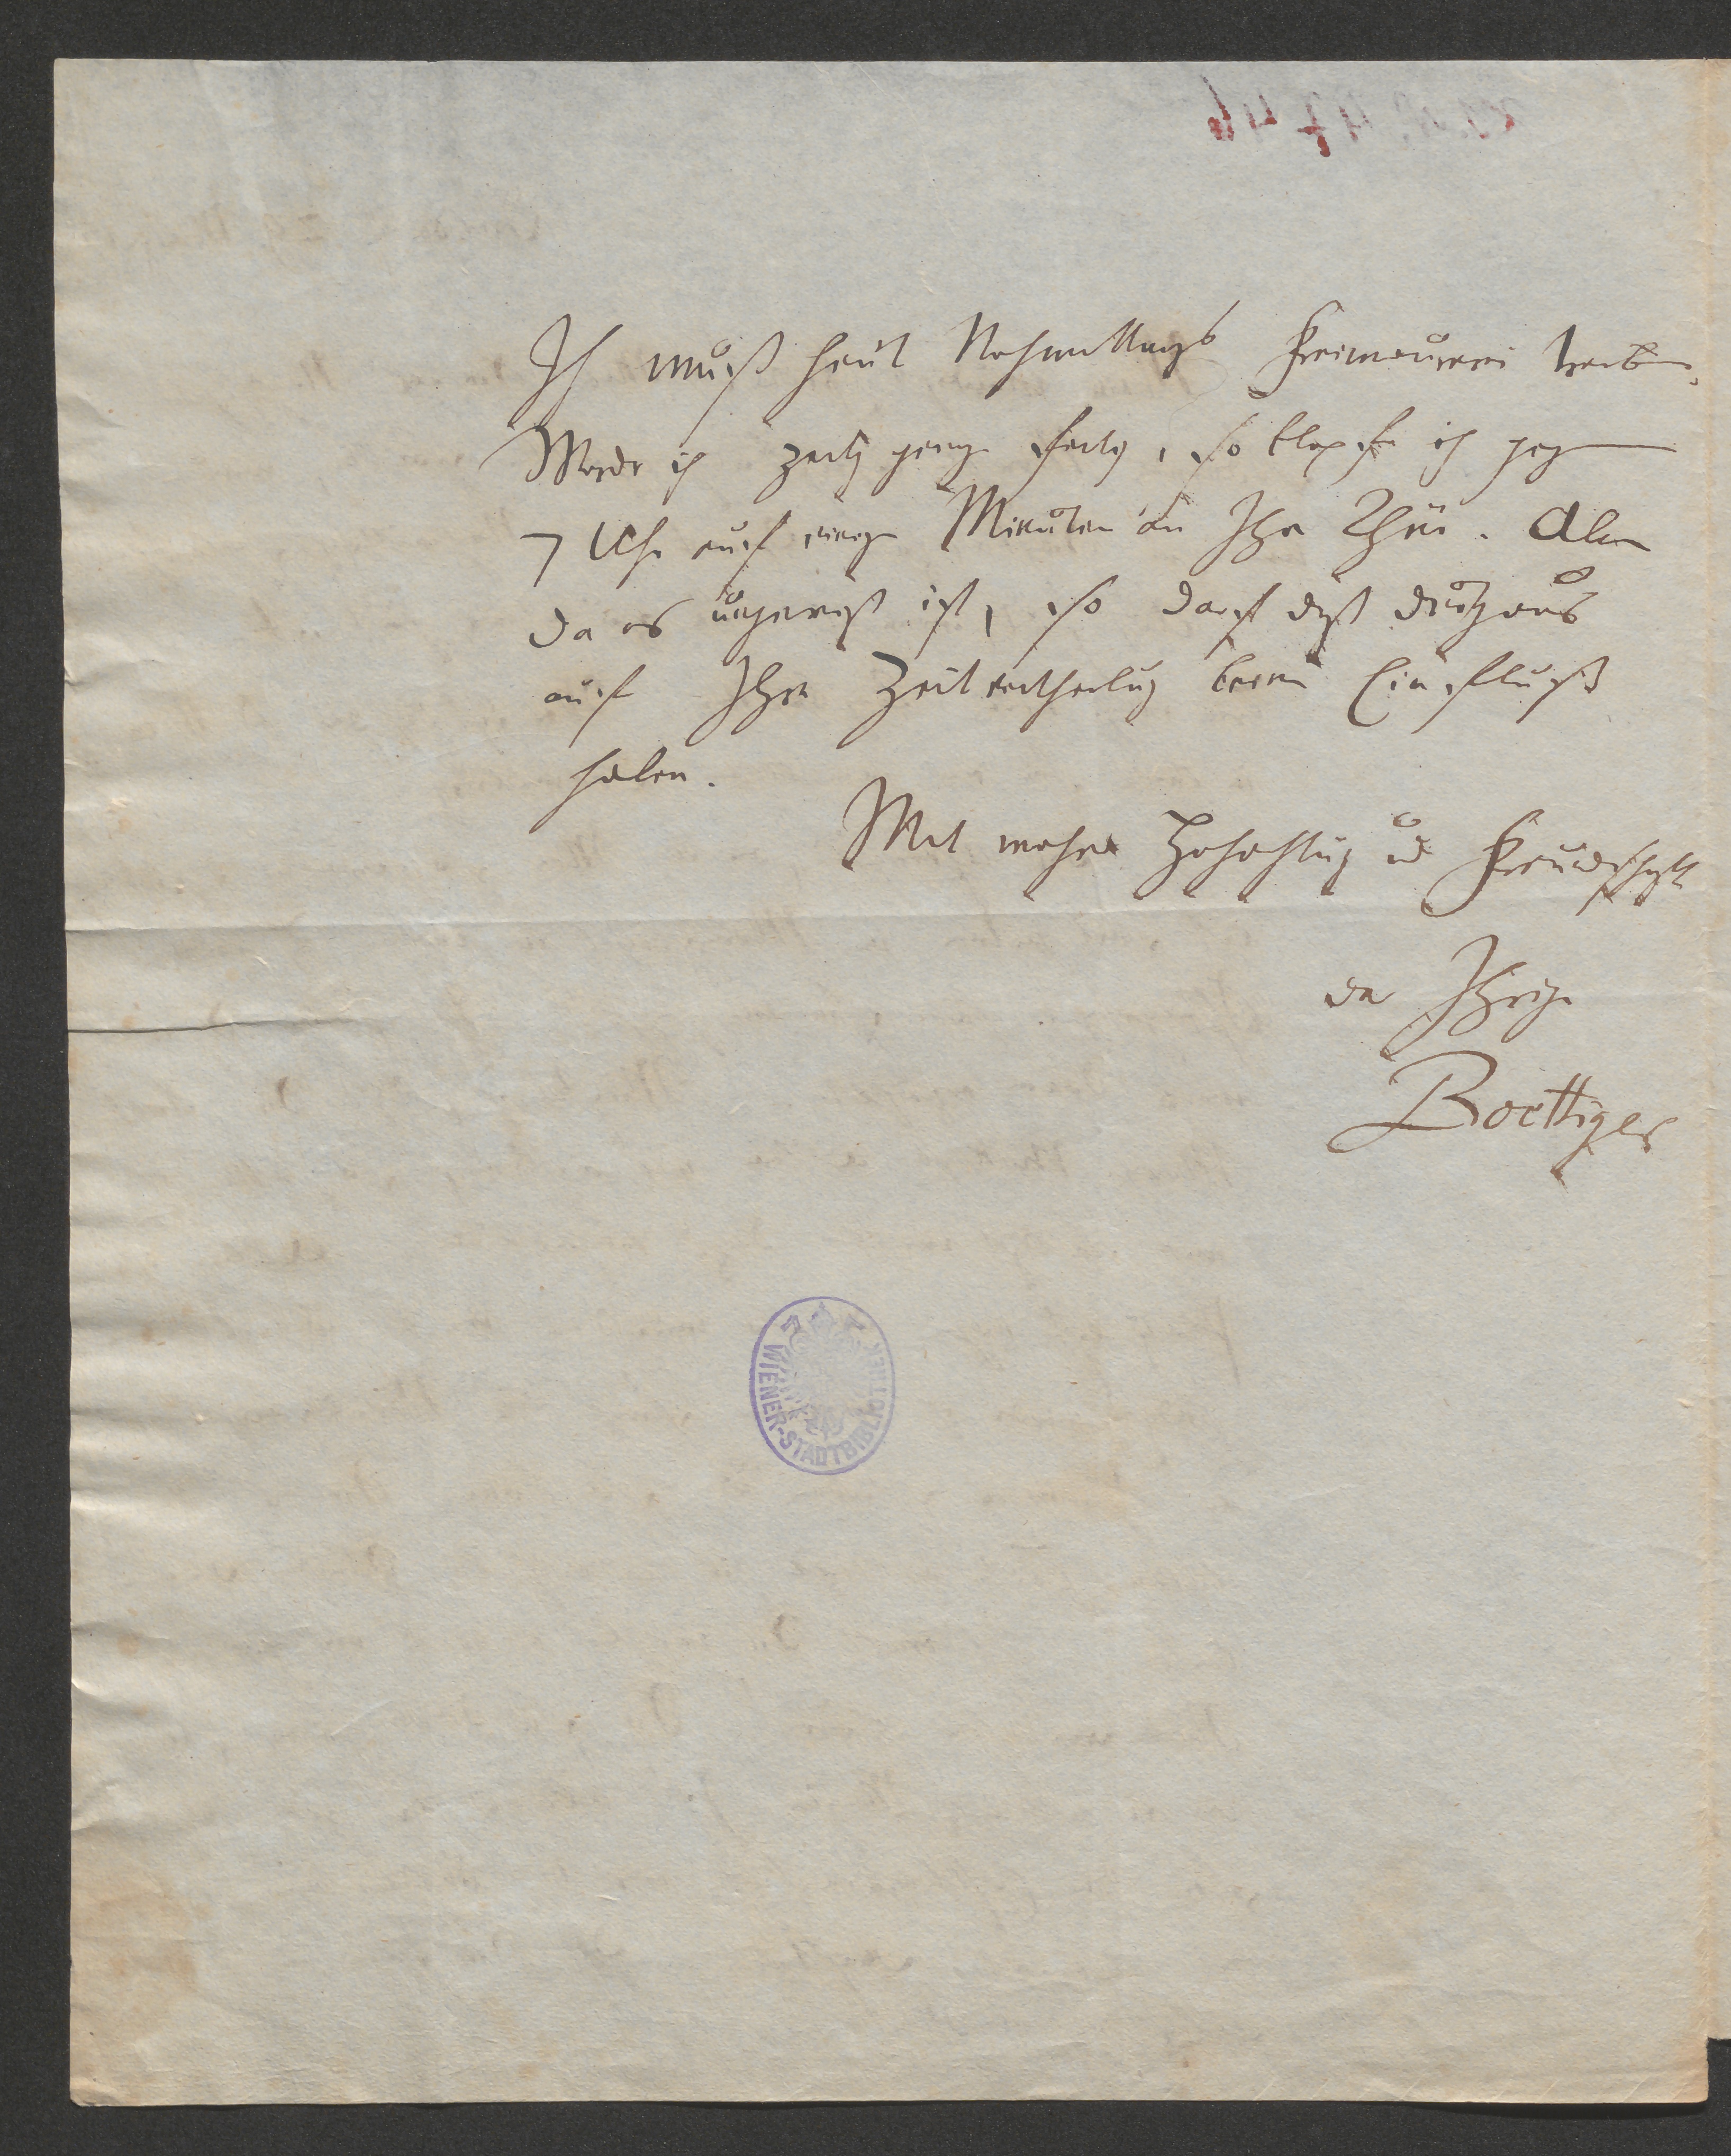 Ich muß heut Nachmittags Freimaurerei treiben.
Werde ich zeitig genug fertig, so klopfe ich gegen
7 Uhr auf einige Minuten an Ihre Thür. Allein
da es ungewiß ist, so darf dieß durchaus
auf Ihre Zeiteintheilung keinen Einfluß
haben.
Mit wahrer Hochachtung und Freundschaft
der Ihrige
Boettiger
WIENER-STADTBIBLIOTHEK